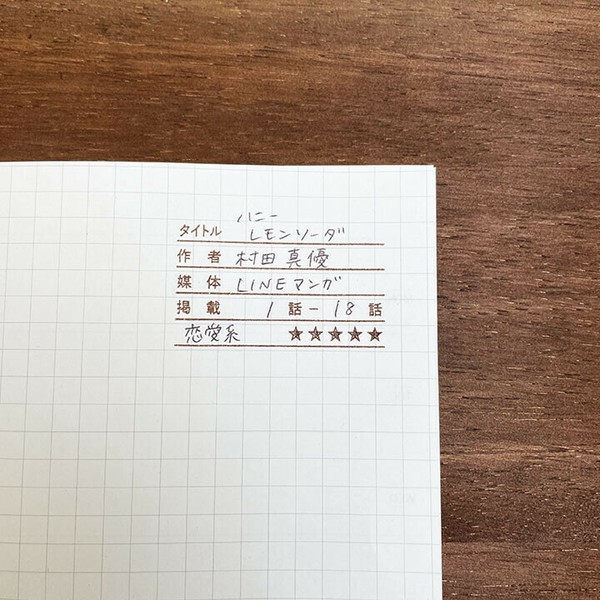 ハニー
タイトル レモンソーダ
作者 村田真優
媒体 LINEマンガ
掲載 1話-18話
恋愛系 ★★★★★